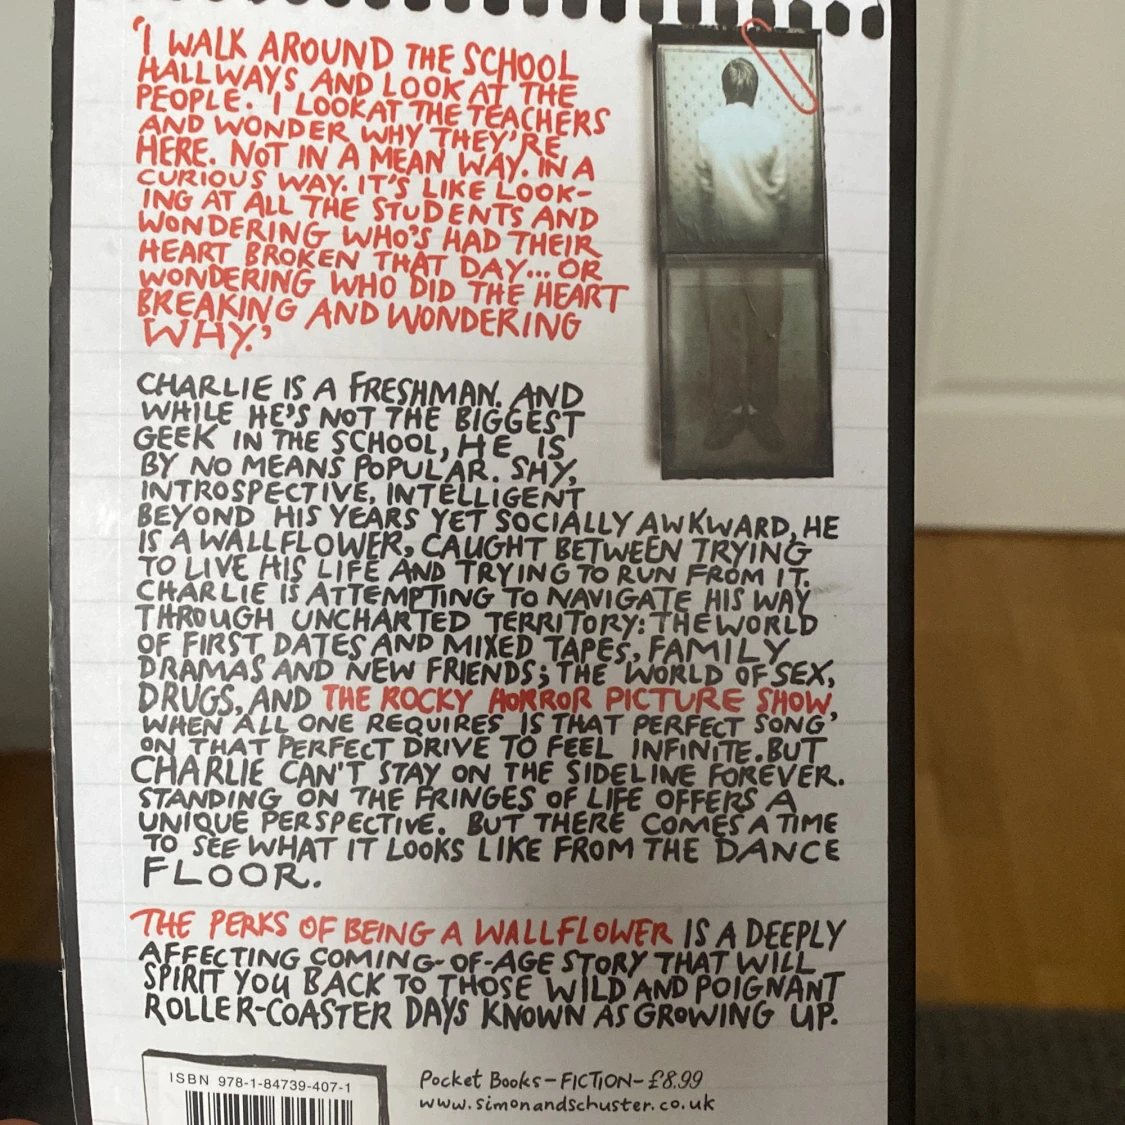 'I WALK AROUND THE SCHOOL
HALLWAYS AND LOOK AT THE
PEOPLE. I LOOK AT THE TEACHERS
AND WONDER WHY THEY'RE
HERE. NOT IN A MEAN WAY. IN A
CURIOUS WAY. IT'S LIKE LOOK-
ING AT ALL THE STUDENTS AND
WONDERING WHO'S HAD THEIR
HEART BROKEN THAT DAY... OR
WONDERING WHO DID THE HEART
BREAKING AND WONDERING
WHY.'
CHARLIE IS A FRESHMAN. AND
WHILE HE'S NOT THE BIGGEST
GEEK IN THE SCHOOL, HE IS
BY NO MEANS POPULAR. SHY,
INTROSPECTIVE, INTELLIGENT
BEYOND HIS YEARS YET SOCIALLY AWKWARD, HE
IS A WALLFLOWER, CAUGHT BETWEEN TRYING
TO LIVE HIS LIFE AND TRYING TO RUN FROM IT.
CHARLIE IS ATTEMPTING TO NAVIGATE HIS WAY
THROUGH UNCHARTED TERRITORY: THE WORLD
OF FIRST DATES AND MIXED TAPES, FAMILY
DRAMAS AND NEW FRIENDS; THE WORLD OF SEX,
DRUGS, AND THE ROCKY HORROR PICTURE SHOW,
WHEN ALL ONE REQUIRES IS THAT PERFECT SONG
ON THAT PERFECT DRIVE TO FEEL INFINITE. BUT
CHARLIE CAN'T STAY ON THE SIDELINE FOREVER.
STANDING ON THE FRINGES OF LIFE OFFERS A
UNIQUE PERSPECTIVE. BUT THERE COMES A TIME
TO SEE WHAT IT LOOKS LIKE FROM THE DANCE
FLOOR.
THE PERKS OF BEING A WALLFLOWER IS A DEEPLY
AFFECTING COMING-OF-AGE STORY THAT WILL
SPIRIT YOU BACK TO THOSE WILD AND POIGNANT
ROLLER-COASTER DAYS KNOWN AS GROWING UP.
ISBN 978-1-84739-407-1
Pocket Books-FICTION-£8.99
www.simonandschuster.co.uk